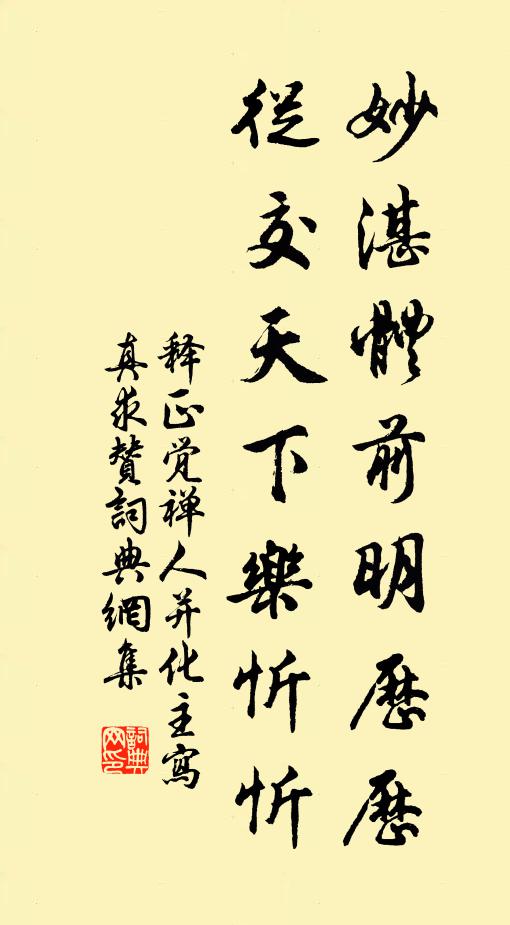 妙湛體前明歷歷
從交天下樂忻忻
释正觉禅人并化主寫
真求賛詞典網集
詞典網印